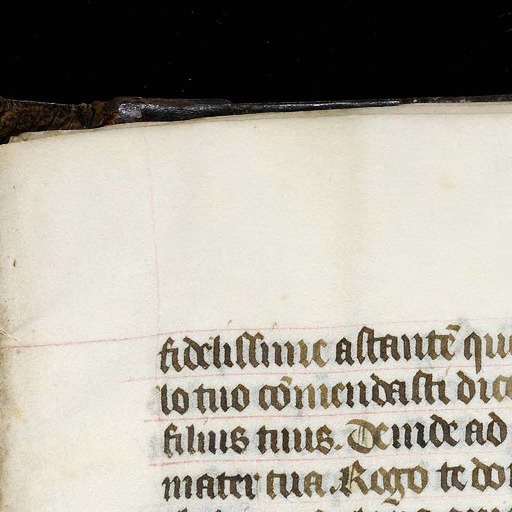 fidelissime astantē que
lo tuo cōmendasti dice
filius tuus. Deinde ad
mater tua. Rogo te do